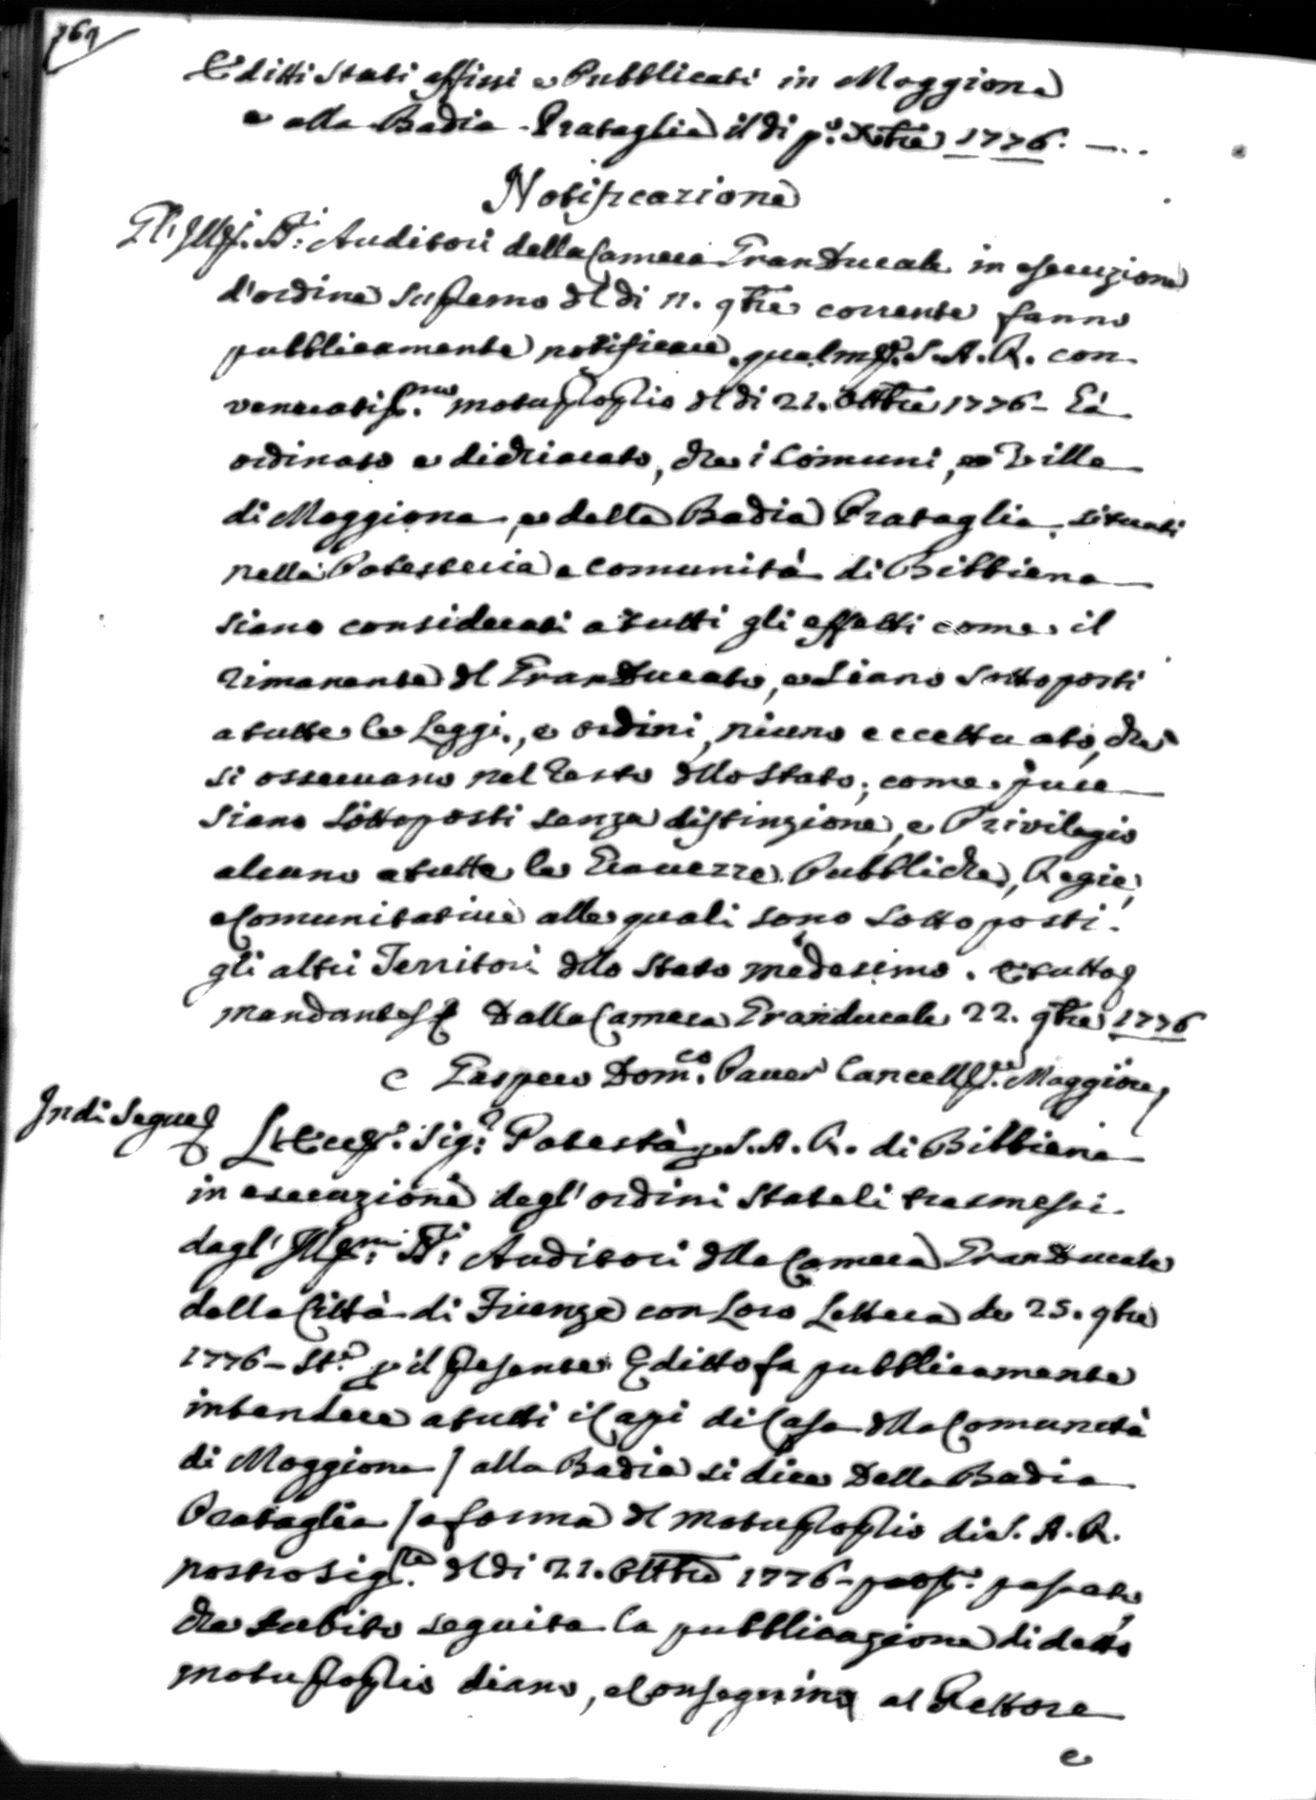 769
Editti Stati affissi e Pubblicati in Moggiona
e alla Badia Prataglia il dì p.º Xbre 1776.
Notificazione
Gl' Ill.ri SS.ri Auditori della Camera GranDucale in esecuzione
d'ordine Supremo del dì 11. 9bre corrente fanno
pubblicamente notificare, qualm.e S. A. R. con
veneratiss.mo motuproprio del dì 21. Ottbre 1776 - Ed à
ordinato e dichiarato, che i Comuni, e Ville
di Moggiona, e della Badia Prataglia situati
nella Potesteria e Comunità di Bibbiena
siano considerati a tutti gli effetti come il
rimanente del GranDucato, e siano sottoposti
a tutte le Leggi, e ordini, niuno eccettuato, che
si osservano nel resto dello Stato; come pure
siano sottoposti senza distinzione, e Privilegio
alcuno a tutte le Gravezze Pubbliche, Regie,
e Comunitative alle quali sono sottoposti
gli altri Territori dello Stato medesimo. E tutto
mandantes Dalla Camera Granducale 22. 9bre 1776
Gaspero Dom.co Paver Cancell.re Maggiore
Indi Segue
L'Ecc.mo Sig.r Potestà p. S. A. R. di Bibbiena
in esecuzione degl' ordini Statoli trasmessi
dagl' Ill.mi SS.ri Auditori della Camera GranDucale
della Città di Firenze con Loro Lettera de 25. 9bre
1776 - St.e p. il presente Editto fa pubblicamente
intendere a tutti i Capi di Casa della Comunità
di Moggiona / alla Badia si dice Della Badia
Prataglia / a forma del motuproprio di S. A. R.
nostro Sig.re del dì 21. Ottbre 1776 - pross.º passato
che subito seguita la pubblicazione di detto
motuproprio diano, e Consegnino al Rettore
e